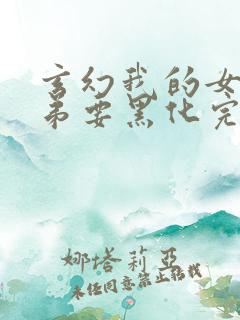 玄幻我的女
弟要黑化完
娜塔莉亚
未经同意禁止转载